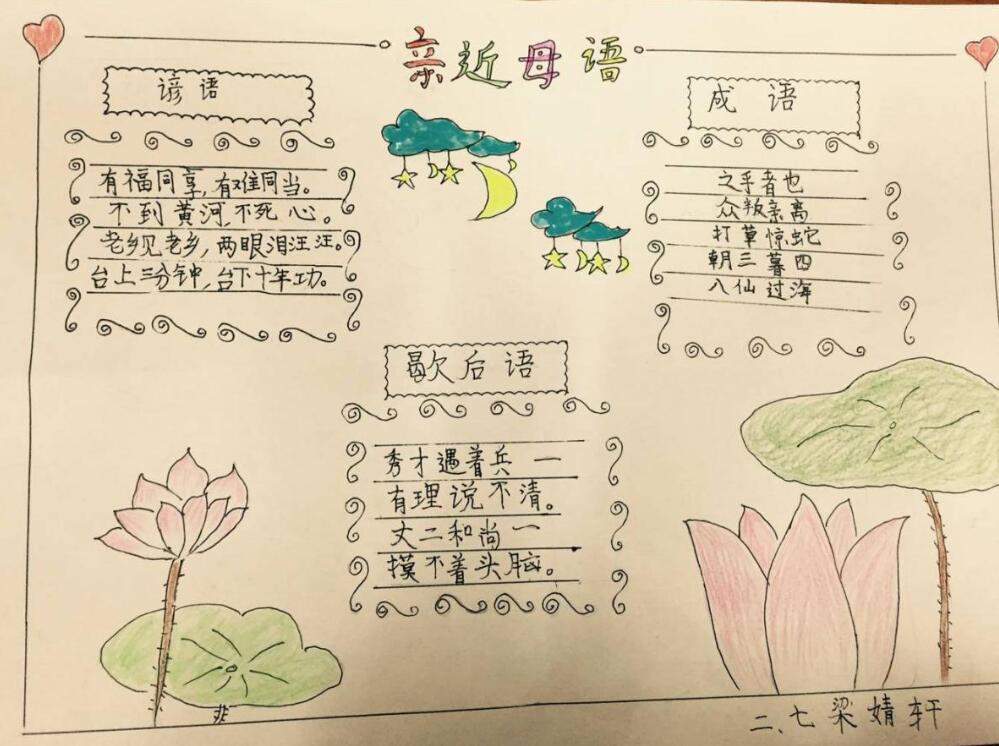 亲近母语
谚语
有福同享,有难同当。
不到黄河,不死心。
老乡见老乡,两眼泪汪汪。
台上三分钟,台下十年功。
成语
之乎者也
众叛亲离
打草惊蛇
朝三暮四
八仙过海
歇后语
秀才遇着兵一
有理说不清。
丈二和尚一
摸不着头脑。
二、七梁婧轩